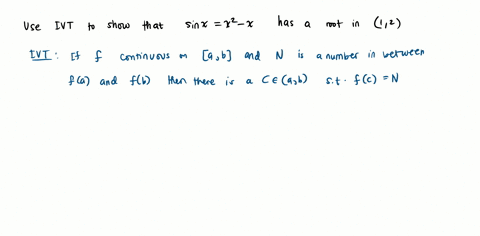 Use IVT to show that sinx = x² - x has a root in (1,2)
IVT: If f continuous on [a,b] and N is a number in between
f(a) and f(b) then there is a C ∈ (a,b) s.t. f(c) = N